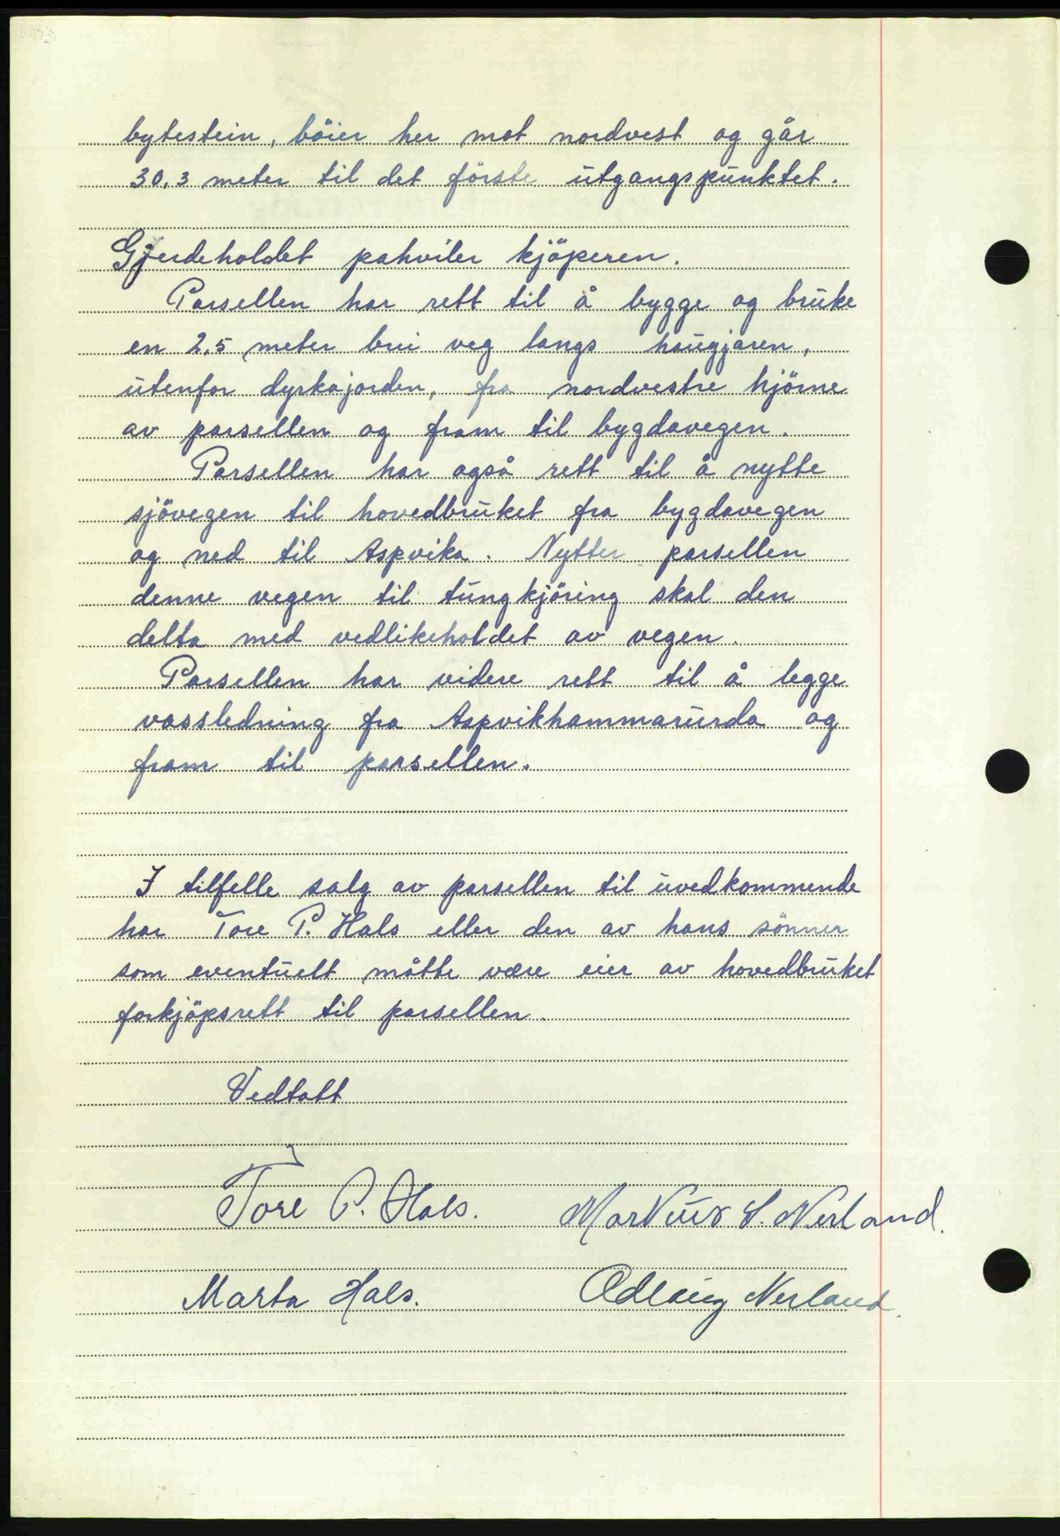 bytestein, böier her mot nordvest og går
30.3 meter til det förste utgangspunktet.
Gjerdeholdet påhviler kjöperen.
Parsellen har rett til å bygge og bruke
en 2.5 meter brei veg langs haugjaren,
utenfor dyrkajorden, fra nordvestre hjörne
av parsellen og fram til bygdavegen.
Parsellen har også rett til å nytte
sjövegen til hovedbruket fra bygdavegen
og ned til Aspvika. Nytter parsellen
denne vegen til tungkjöring skal den
delta med vedlikeholdet av vegen.
Parsellen har videre rett til å legge
vassledning fra Aspvikhammarurda og
fram til parsellen.
I tilfelle salg av parsellen til uvedkommende
har Tore P. Hals eller den av hans sönner
som eventuelt måtte være eier av hovedbruket
forkjöpsrett til parsellen.
Vedtatt
Tore P. Hals. Markus S. Nerland.
Marta Hals. Odlaug Nerland.